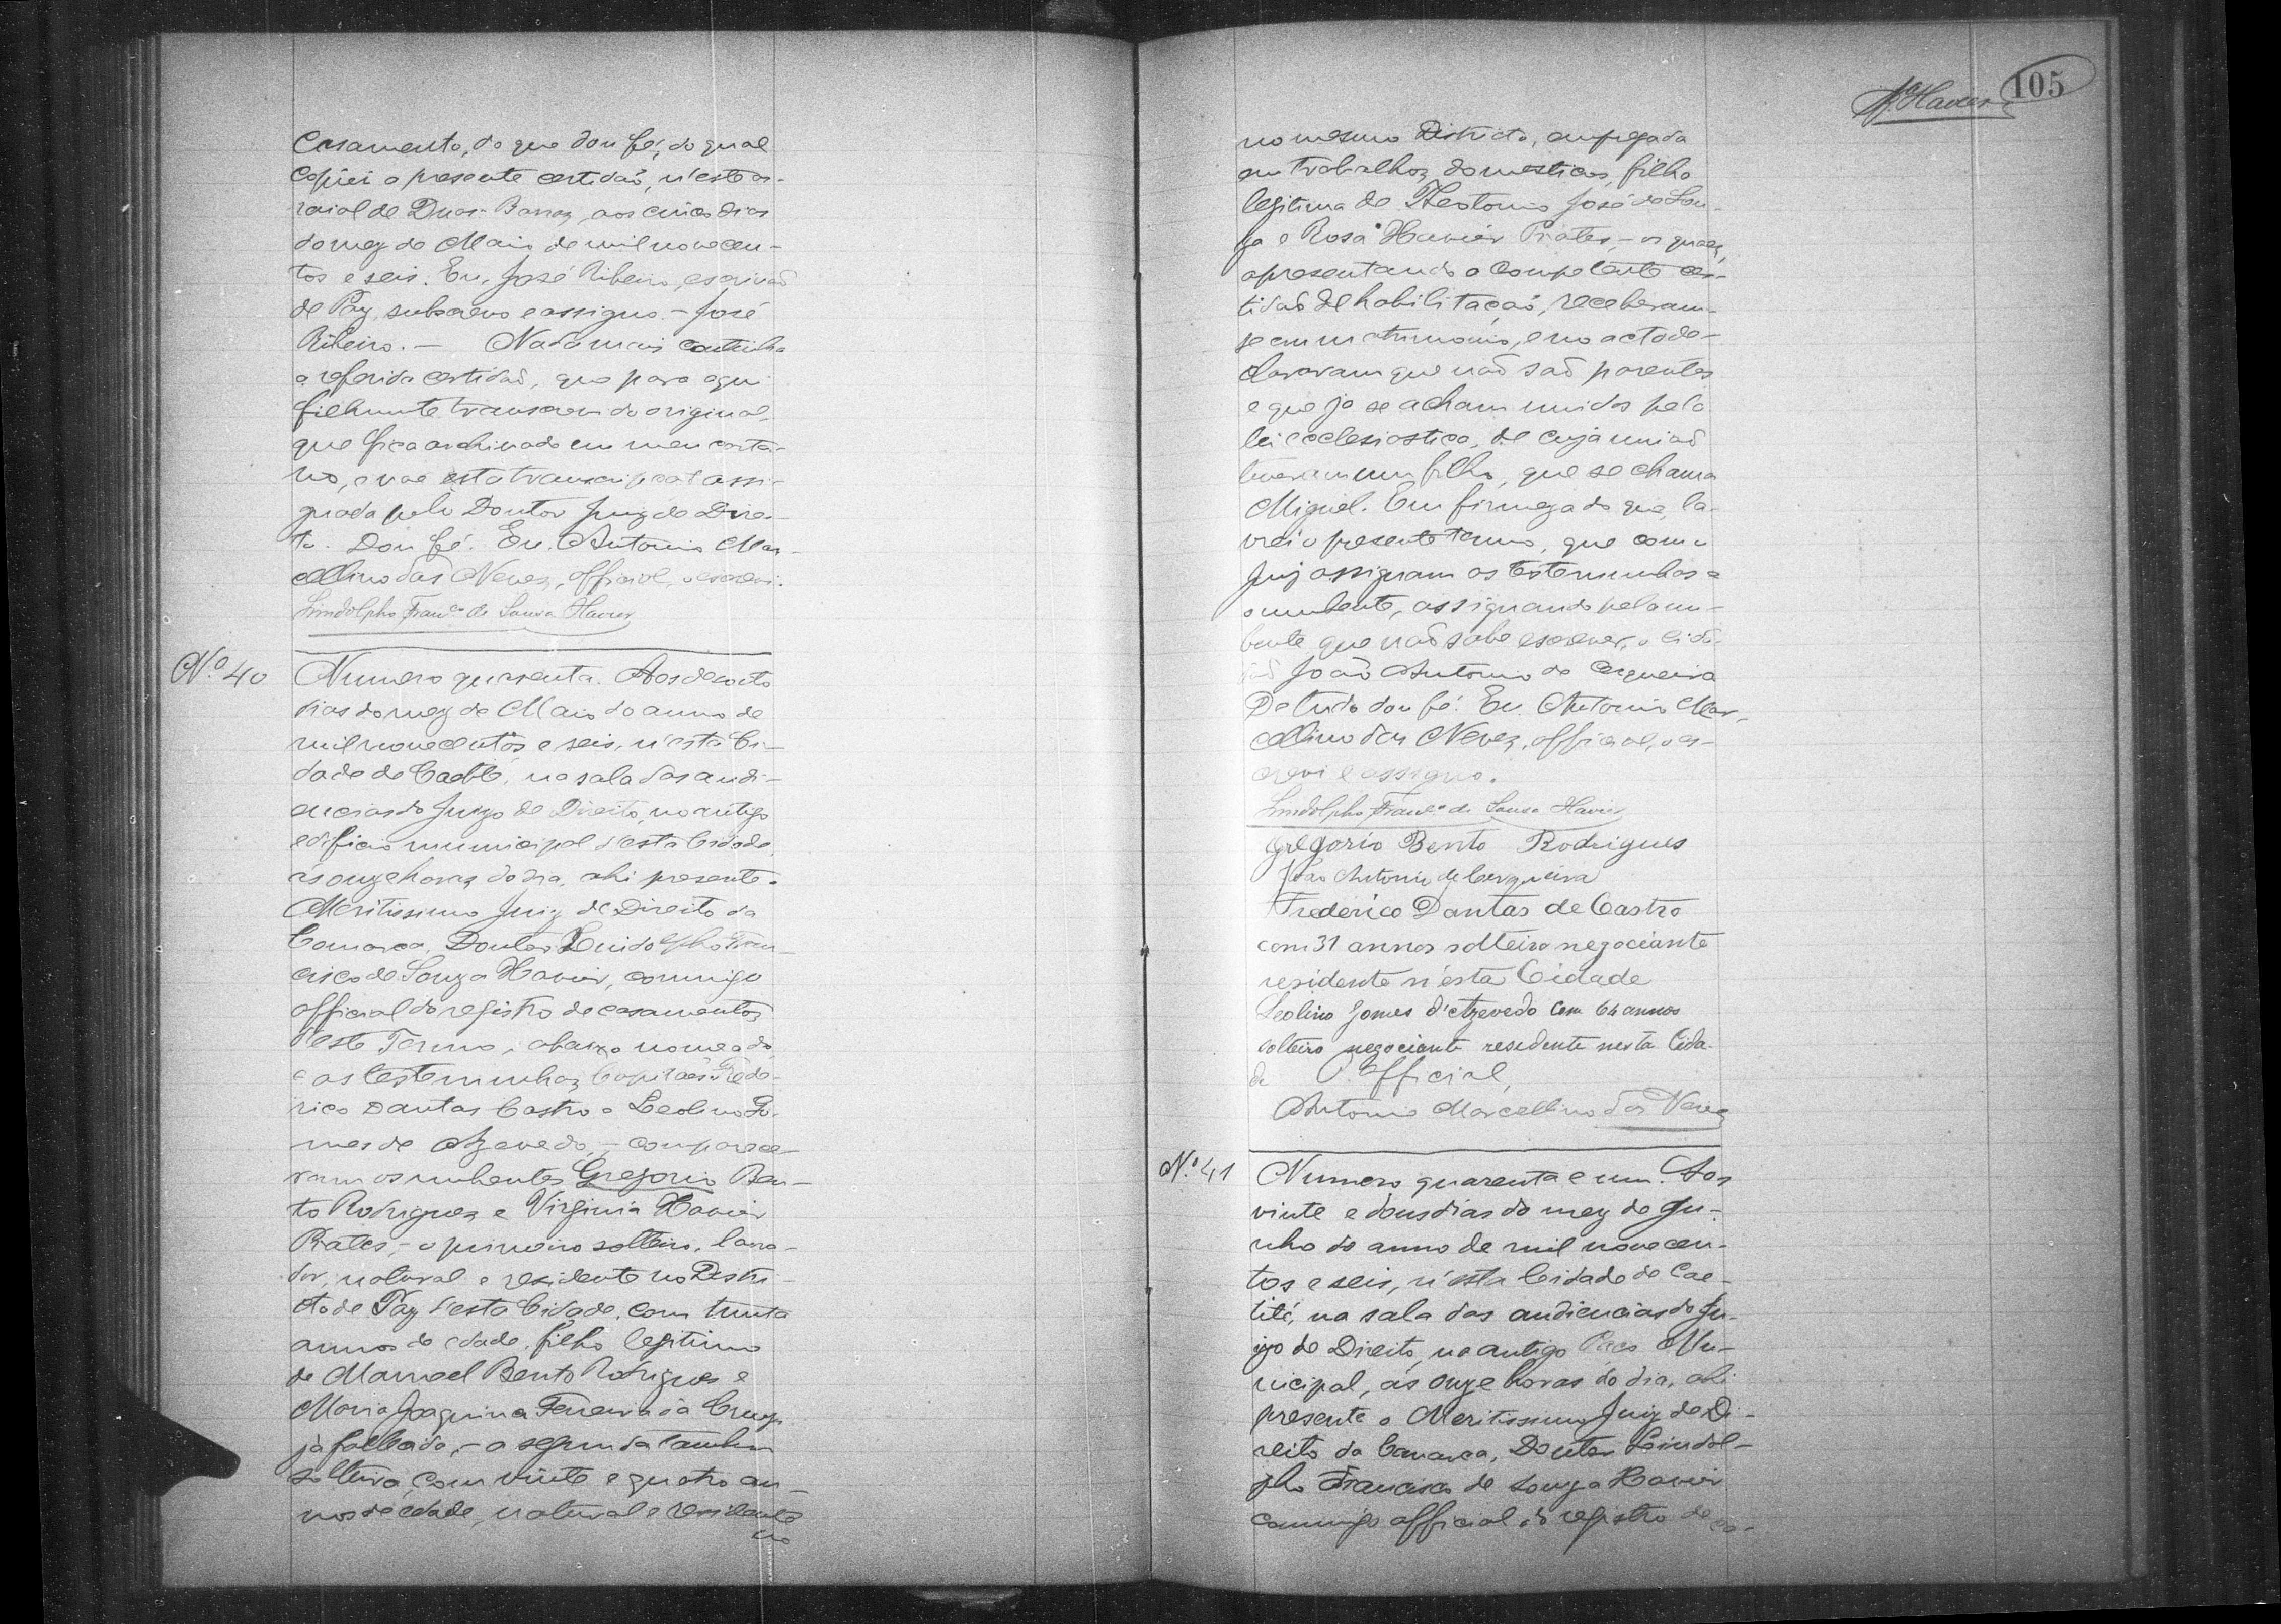 Casamento, do que dou fé, do qual
copiei a presente certidaõ, n'este ar-
raial de Duas-Barras, aos cinco dias
do mez de Maio de mil novecen-
tos e seis. Eu, José Ribeiro, escrivaõ
de Paz, subscrevo e assigno. - José
Ribeiro. - Nada mais continha
a referida certidaõ, que para aqui
fielmente transcrevi do original,
que fica archivado em meu carto-
rio, e vae esta transcripçaõ assi-
gnada pelo Doutor Juiz de Direi-
to. Dou fé. Eu, Antonio Mar-
cellino das Neves, official, o escrevi.
Lindolpho Franc.co de Sousa Xavier
N.o 40
Numero quarenta. Aos desoito
dias do mez de Maio do anno de
mil novecentos e seis, n'esta Ci-
dade de Caetité, na sala das audi-
encias do Juizo de Direito, no antigo
edificio municipal d'esta Cidade,
as onze horas do dia, ahi presente o
Meritissimo Juiz de Direito da
Comarca, Doutor Lindolpho Fran-
cisco de Souza Xavier, commigo
official do registro de casamentos
d'este Termo, abaixo nomeado,
e as testemunhas Capitães Frede-
rico Dantas Castro e Leolino Go-
mes de Azevedo, - comparece-
ram os nubentes Gregorio Ben-
to Rodrigues e Virginia Xavier
Prates, - o primeiro solteiro, lavra-
dor, natural e residente no Distri-
cto de Paz d'esta Cidade, com trinta
annos de edade, filho legitimo
de Manoel Bento Rodrigues e
Maria Joaquina Ferreira da Cruz,
já fallecida, - a segunda tambem
solteira, com vinte e quatro an-
nos de edade, natural e residente
no
105
no mesmo Districto, empregada
em trabalhos domesticos, filha
legitima de Theotonio José de Sou-
za e Rosa Xavier Prates, - os quaes,
apresentando a competente cer-
tidaõ de habilitaçaõ, receberam-
se em matrimonio, e no acto de-
clararam que naõ saõ parentes
e que ja se acham unidos pela
lei ecclesiastica, de cuja uniaõ
tiveram um filho, que se chama
Miguel. Em firmeza do que, la-
vrei o presente termo, que com o
Juiz assignam as testemunhas e
o nubente, assignando pela nu-
bente, que naõ sabe escrever, o cida-
daõ João Antonio de Cerqueira
De tudo dou fé. Eu, Antonio Mar-
cellino das Neves, official, o es-
crevi e assigno.
Lindolpho Franc.co de Sousa Xavier
Gregorio Bento Rodrigues
João Antonio de Cerqueira
Frederico Dantas de Castro
com 31 annos solteiro negociante
residente n'esta Cidade
Leolino Gomes d'Azevedo com 64 annos
solteiro negociante residente nesta Cida-
de O Official,
Antonio Marcellino das Neves
N.o 41
Numero quarenta e um. Aos
vinte e dous dias do mez de Ju-
nho do anno de mil novecen-
tos e seis, n'esta Cidade de Cae-
tité, na sala das audiencias do Ju-
izo de Direito, no antigo Paço Mu-
nicipal, ás onze horas do dia, ahi
presente o Meritissimo Juiz de Di-
reito da Comarca, Doutor Lindol-
pho Francisco de Souza Xavier
commigo official do registro de ca-